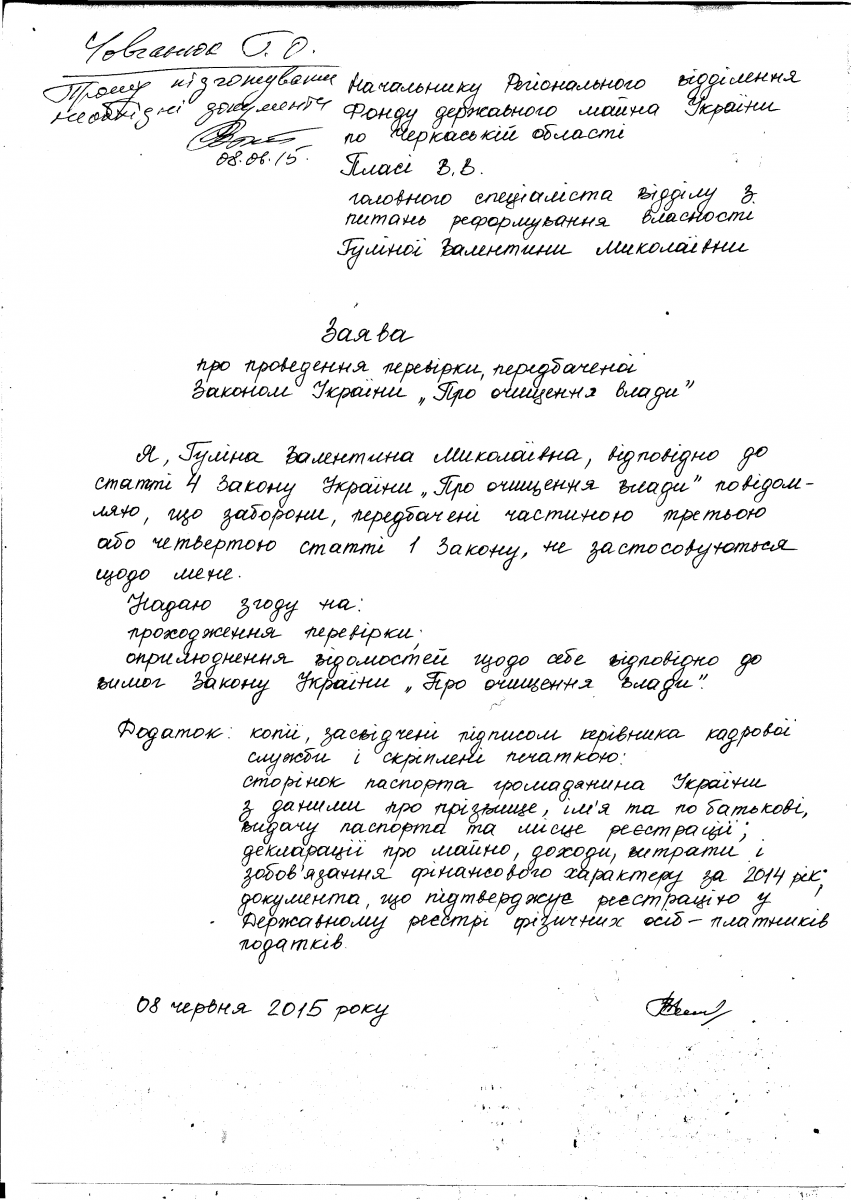 Човганюк Г. О.
Прошу підготувати
необхідні документи
08.06.15.
Начальнику Регіонального відділення
Фонду державного майна України
по Черкаській області
Пласі В.В.
головного спеціаліста відділу з
питань реформування власності
Гуліної Валентини Миколаївни
Заява
про проведення перевірки, передбаченої
Законом України „Про очищення влади"
Я, Гуліна Валентина Миколаївна, відповідно до
статті 4 Закону України „Про очищення влади" повідом-
ляю, що заборони, передбачені частиною третьою
або четвертою статті 1 Закону, не застосовуються
щодо мене.
Надаю згоду на:
проходження перевірки;
оприлюднення відомостей щодо себе відповідно до
вимог Закону України „Про очищення влади".
Додаток: копії, засвідчені підписом керівника кадрової
служби і скріплені печаткою:
сторінок паспорта громадянина України
з даними про прізвище, ім'я та по батькові,
видачу паспорта та місце реєстрації;
декларації про майно, доходи, витрати і
зобов'язання фінансового характеру за 2014 рік;
документа, що підтверджує реєстрацію у
Державному реєстрі фізичних осіб – платників
податків.
08 червня 2015 року